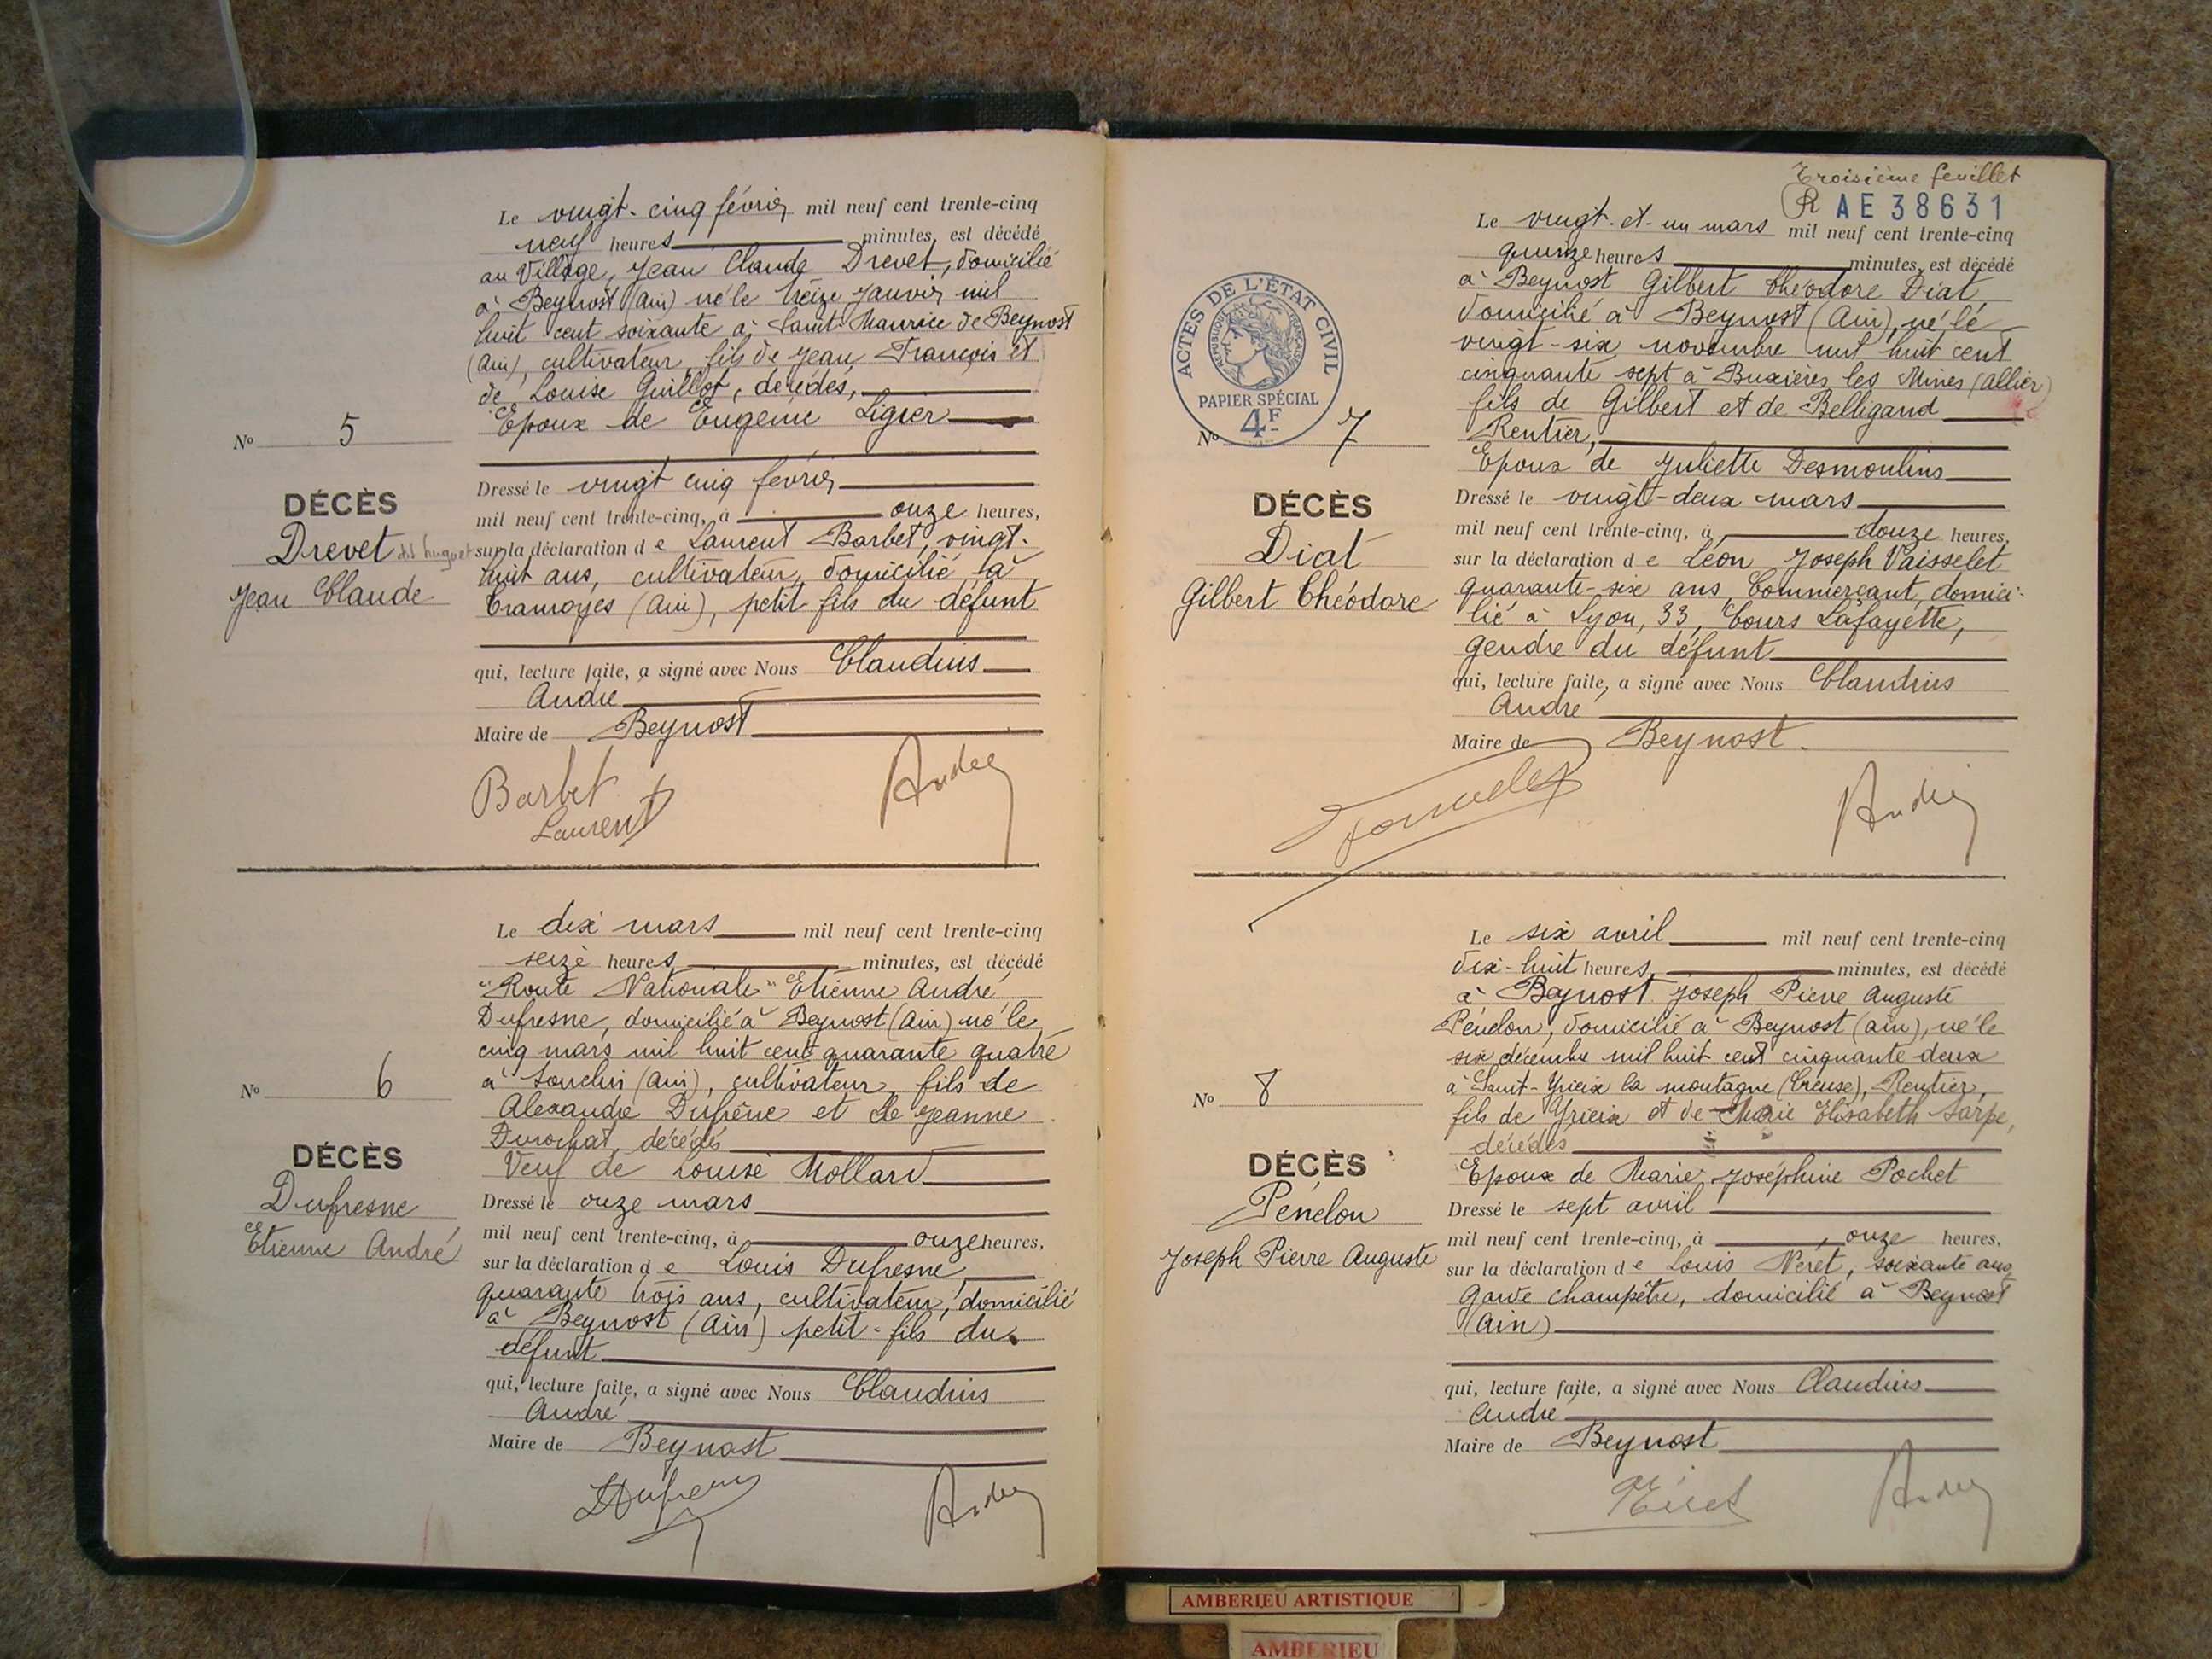 Le vingt-cinq février mil neuf cent trente-cinq
neuf heures minutes, est décédé
au Village, Jean Claude Drevet, domicilié
à Beynost (Ain) né le treize janvier mil
huit cent soixante à Saint-Maurice de Beynost
(Ain), cultivateur, fils de Jean François et
de Louise Guillot, décédés,
Epoux de Eugénie Ligier
No 5
DÉCÈS
Drevet dit huguet
Jean Claude
Dressé le vingt cinq février
mil neuf cent trente-cinq, à onze heures,
sur la déclaration de Laurent Barbet, vingt-
huit ans, cultivateur, domicilié à
Tramoyes (Ain), petit-fils du défunt
qui, lecture faite, a signé avec Nous Claudius
André
Maire de Beynost
Barbet
Laurent
André
Le dix mars mil neuf cent trente-cinq
seize heures minutes, est décédé
"Route Nationale" Etienne André
Dufresne, domicilié à Beynost (Ain) né le
cinq mars mil huit cent quarante quatre
à Souclin (Ain), cultivateur, fils de
Alexandre Dufrêne et de Jeanne
Durochat, décédés
Veuf de Louise Mollard
No 6
DÉCÈS
Dufresne
Etienne André
Dressé le onze mars
mil neuf cent trente-cinq, à onze heures,
sur la déclaration de Louis Dufresne,
quarante trois ans, cultivateur, domicilié
à Beynost (Ain) petit-fils du
défunt
qui, lecture faite, a signé avec Nous Claudius
André
Maire de Beynost
LDufresne
André
Troisième feuillet
R AE 38631
Le vingt-et-un mars mil neuf cent trente-cinq
quinze heures minutes, est décédé
à Beynost Gilbert Théodore Diat,
domicilié à Beynost (Ain), né le
vingt-six novembre mil huit cent
cinquante sept à Buxières les Mines (Allier)
fils de Gilbert et de Belligand
Rentier,
Epoux de Juliette Desmoulins
ACTES DE L'ÉTAT CIVIL
RÉPUBLIQUE FRANÇAISE
PAPIER SPÉCIAL
4F
No 7
DÉCÈS
Diat
Gilbert Théodore
Dressé le vingt-deux mars
mil neuf cent trente-cinq, à douze heures,
sur la déclaration de Léon Joseph Vaisselet
quarante-six ans, Commerçant, domici-
lié à Lyon, 33, Cours Lafayette,
gendre du défunt
qui, lecture faite, a signé avec Nous Claudius
André
Maire de Beynost.
André
Le six avril mil neuf cent trente-cinq
dix-huit heures minutes, est décédé
à Beynost Joseph Pierre Auguste
Pénelon, domicilié à Beynost (Ain), né le
six décembre mil huit cent cinquante deux
à Saint-Yrieix la montagne (Creuse), Rentier,
fils de Yrieix et de Marie Elisabeth Sarpe,
décédés
Epoux de Marie Joséphine Pochet
No 8
DÉCÈS
Pénelon
Joseph Pierre Auguste
Dressé le sept avril
mil neuf cent trente-cinq, à onze heures,
sur la déclaration de Louis Néret, soixante ans,
Garde champêtre, domicilié à Beynost
(Ain)
qui, lecture faite, a signé avec Nous Claudius
André
Maire de Beynost
Néret
André
AMBERIEU ARTISTIQUE
AMBERIEU